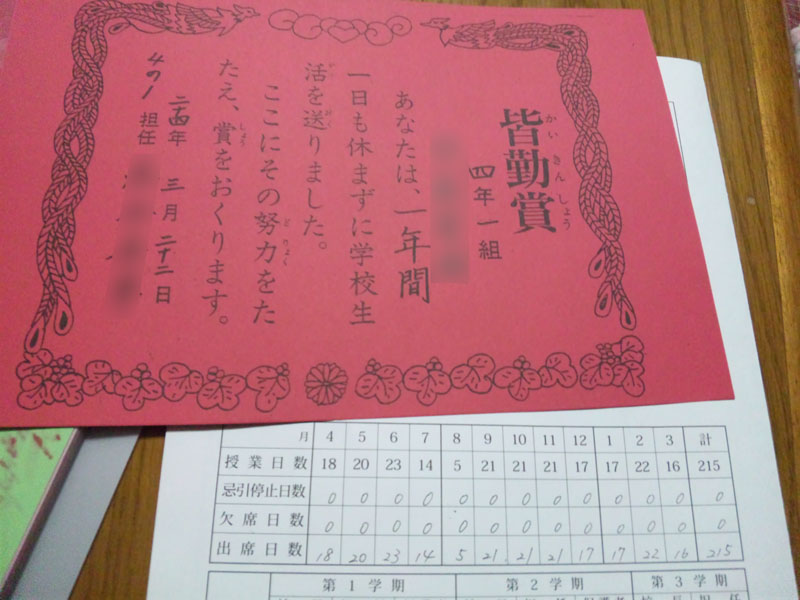 かいきんしょう
皆勤賞
四年一組
あなたは、一年間
一日も休まずに学校生
おく
活を送りました。
どりょく
ここにその努力をた
しょう
たえ、賞をおくります。
年 三月 二十二日
4の1 担任
月 4 5 6 7 8 9 10 11 12 1 2 3 計
授業日数 18 20 23 14 5 21 21 21 17 17 22 16 215
忌引停止日数 0 0 0 0 0 0 0 0 0 0 0 0 0
欠席日数 0 0 0 0 0 0 0 0 0 0 0 0 0
出席日数 18 20 23 14 5 21 21 21 17 17 22 16 215
第1学期 第2学期 第3学期